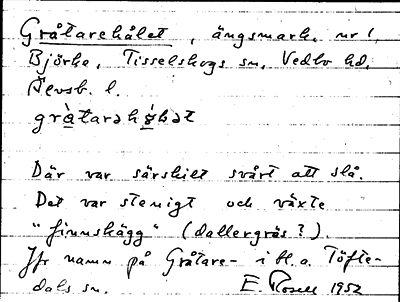 Gråtarehålet, ängsmark, nr 1,
Björke, Tisselskogs sn, Vedbo hd,
Älvsb. l.
gràtarəhǻlət
Där var särskilt svårt att slå.
Det var stenigt och växte
"finnskägg" (dallergräs?).
Jfr namn på Gråtare- i bl.a. Töfte-
dals sn. E. Rosell 1952